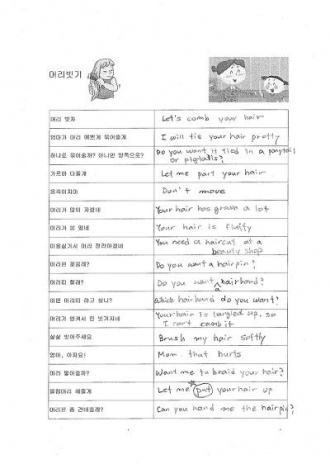 머리빗기
머리 빗자
Let's comb your hair
엄마가 머리 예쁘게 묶어줄게
I will tie your hair pretty
하나로 묶어줄까? 아니면 양쪽으로?
Do you want it tied in a ponytail
or pigtails?
가르마 타줄게
Let me part your hair
움직이지마
Don't move
머리가 많이 자랐네
Your hair has grown a lot
머리가 붕 떴네
Your hair is fluffy
미용실가서 머리 잘라야겠네
You need a haircut at a
beauty shop
머리핀 꽂을래?
Do you want a hairpin?
머리띠 할래?
Do you want a hairband?
어떤 머리띠 하고 싶니?
Which hairband do you want?
머리가 엉켜서 안 빗겨지네
Your hair is tangled up, so
I can't comb it
살살 빗어주세요
Brush my hair softly
엄마, 아파요!
Mom, that hurts
머리 땋아줄까?
Want me to braid your hair?
올림머리 해줄게
Let me put your hair up
머리핀 좀 건네줄래?
Can you hand me the hairpin?